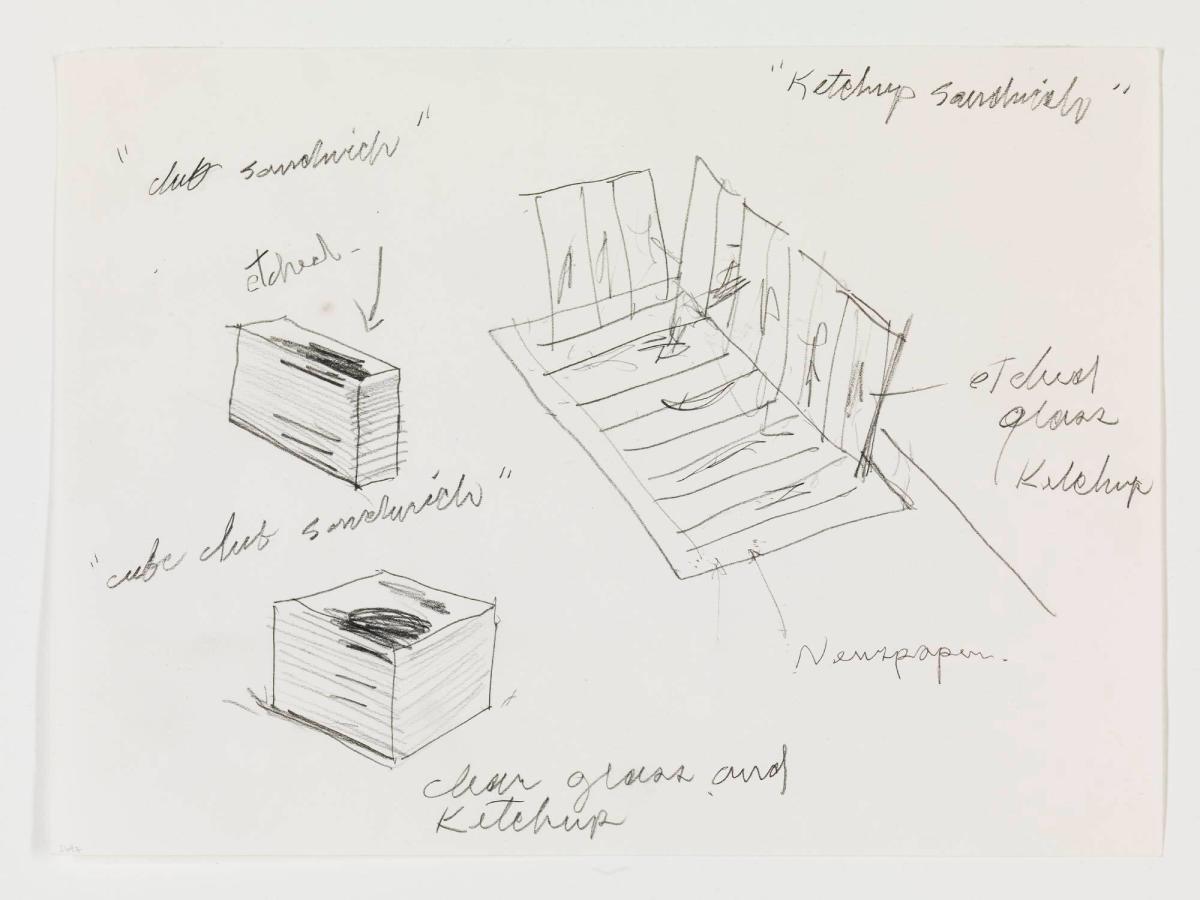 "Ketchup sandwich"
"club sandwich"
etched
"cube club sandwich"
etched
glass
Ketchup
Newspaper.
clear glass and
Ketchup